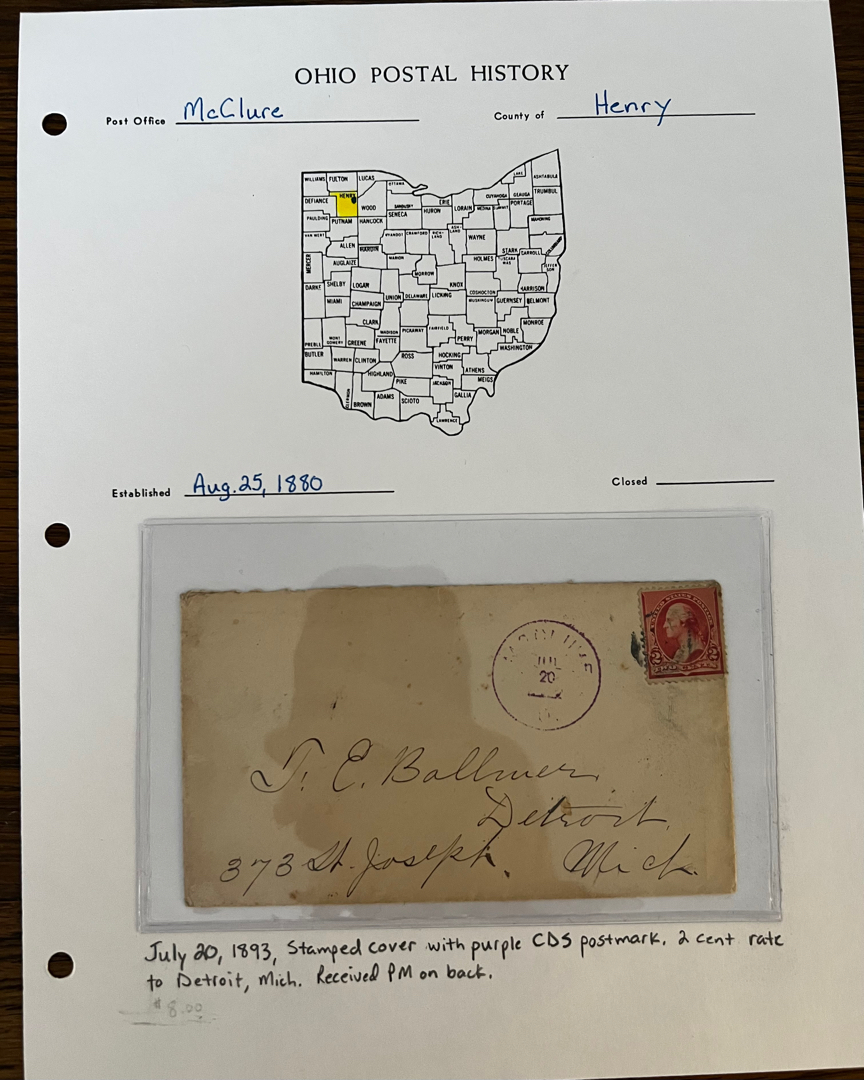 OHIO POSTAL HISTORY
Post Office McClure County of Henry
WILLIAMS FULTON LUCAS OTTAWA LAKE ASHTABULA
DEFIANCE HENRY WOOD SANDUSKY ERIE LORAIN CUYAHOGA GEAUGA TRUMBUL
PAULDING PUTNAM HANCOCK SENECA HURON MEDINA SUMMIT PORTAGE MAHONING
VAN WERT ALLEN HARDIN WYANDOT CRAWFORD RICH-LAND ASH-LAND WAYNE STARK CARROLL COLUMBIANA
MERCER AUGLAIZE MARION MORROW HOLMES TUSCARA WAS JEFFER SON
DARKE SHELBY LOGAN UNION DELAWARE KNOX LICKING COSHOCTON HARRISON
MIAMI CHAMPAIGN MUSKINGUM GUERNSEY BELMONT
CLARK MADISON PICKAWAY FAIRFIELD PERRY MORGAN NOBLE MONROE
PREBLE MONT GOMERY GREENE FAYETTE WASHINGTON
BUTLER WARREN CLINTON ROSS HOCKING VINTON ATHENS
HAMILTON HIGHLAND PIKE JACKSON MEIGS
CLERMONT BROWN ADAMS SCIOTO GALLIA
LAWRENCE
Established Aug. 25, 1880 Closed
UNITED STATES POSTAGE
2 2
TWO CENTS
McCLURE
JUL
20
O.
T. E. Ballmer
Detroit,
373 St. Joseph. Mich.
July 20, 1893, Stamped cover with purple CDS postmark. 2 cent rate
to Detroit, Mich. Received PM on back.
$8.00